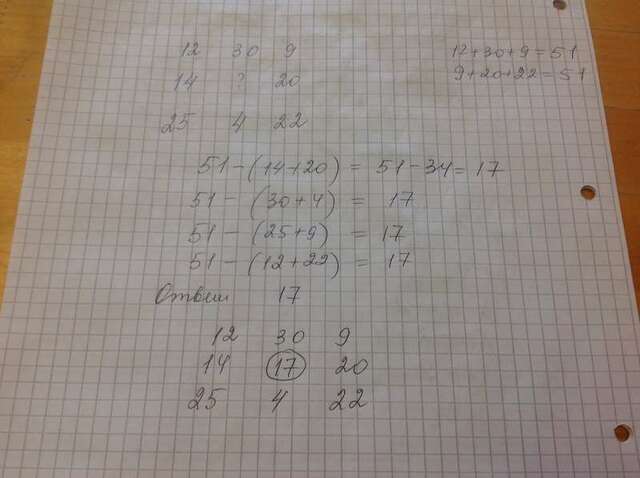 12 30 9
14 ? 20
25 4 22
12+30+9=51
9+20+22=51
51-(14+20) = 51-34=17
51 - (30+4) = 17
51 - (25+9) = 17
51 - (12+22) = 17
Ответ 17
12 30 9
14 17 20
25 4 22